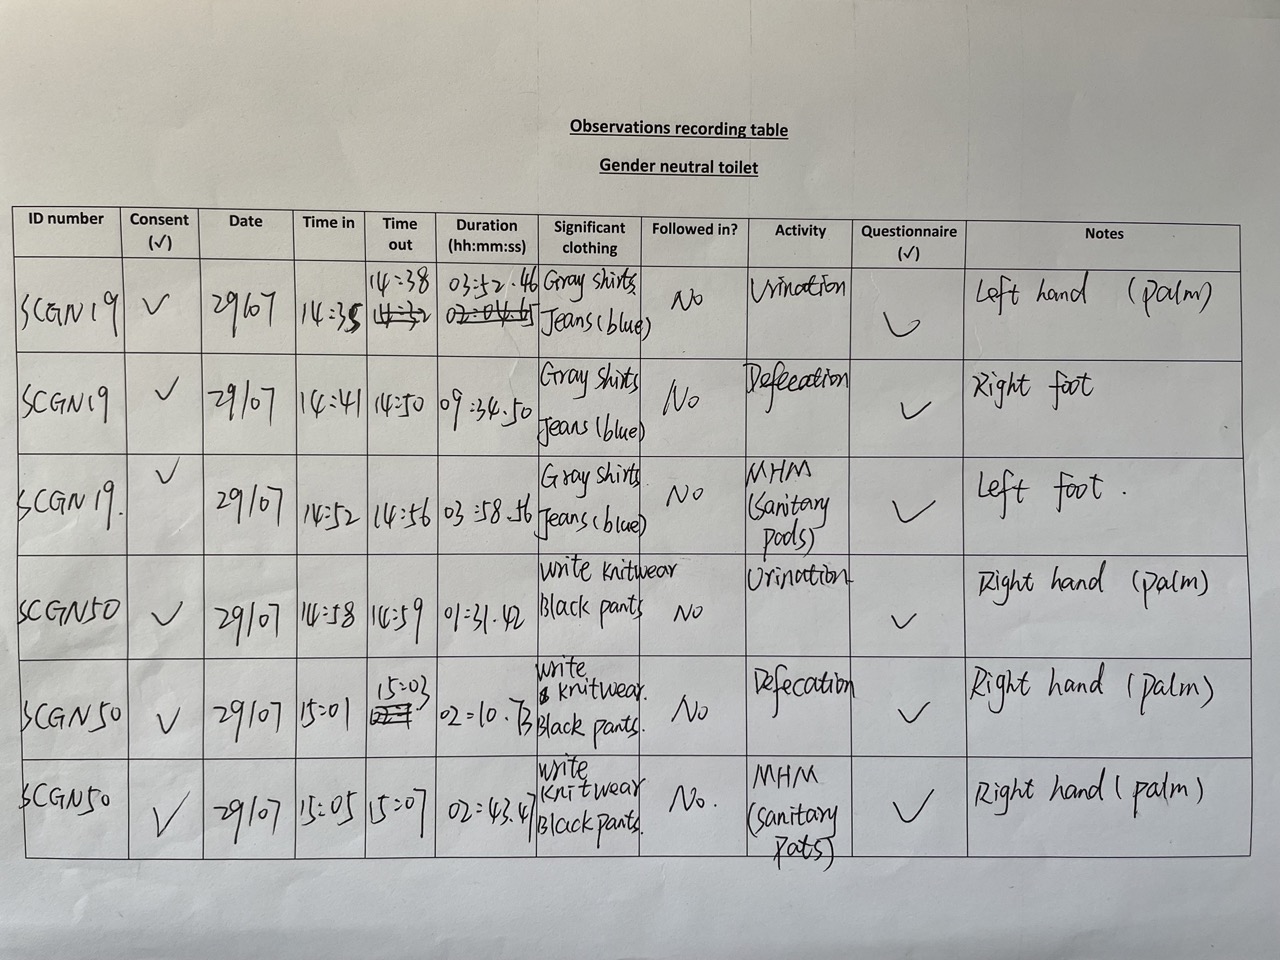 Observations recording table
Gender neutral toilet
ID number Consent (✓) Date Time in Time out Duration (hh:mm:ss) Significant clothing Followed in? Activity Questionnaire (✓) Notes
SCGN19 ✓ 29/07 14:35 14:38 14:32 03:52.46 02:04.65 Gray shirts Jeans (blue) No Urination ✓ Left hand (palm)
SCGN19 ✓ 29/07 14:41 14:50 09:34.50 Gray shirts Jeans (blue) No Defecation ✓ Right foot
SCGN19. ✓ 29/07 14:52 14:56 03:58.56 Gray shirts Jeans (blue) No MHM (sanitary pads) ✓ Left foot.
SCGN50 ✓ 29/07 14:58 14:59 01:31.42 write knitwear Black pants No Urination ✓ Right hand (palm)
SCGN50 ✓ 29/07 15:01 15:03 02:10.73 write knitwear. Black pants. No Defecation ✓ Right hand (palm)
SCGN50 ✓ 29/07 15:05 15:07 02:43.47 write knitwear Black pants. No. MHM (sanitary pats) ✓ Right hand (palm)